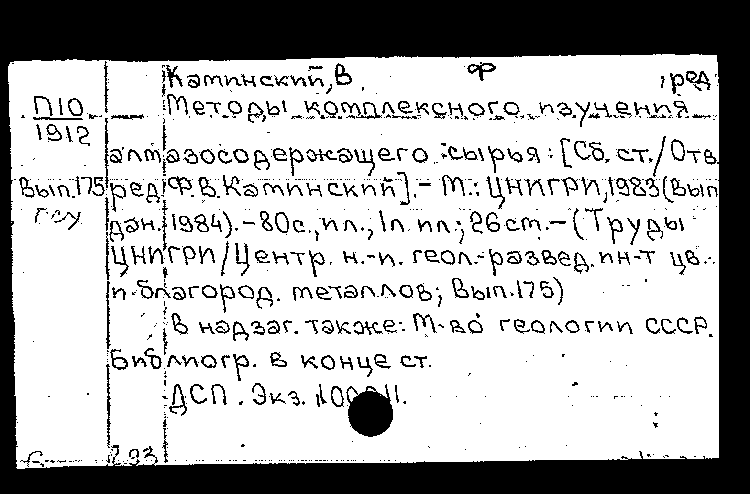 Каминский, В. Ф. , ред
П10 Методы комплексного изучения
1912
алмазосодержащего сырья: [Сб. ст./Отв
Вып.175 ред Ф.В.Каминский].- М.: ЦНИГРИ, 1983(Вып
гсу дан. 1984).-80с., ил., 1л ил.; 26см.-(Труды
ЦНИГРИ/Центр. н.-и. геол.-развед. ин-т цв.
и благород. металлов; Вып.175)
В надзаг. также: М-во геологии СССР.
Библиогр. в конце ст.
ДСП. Экз.